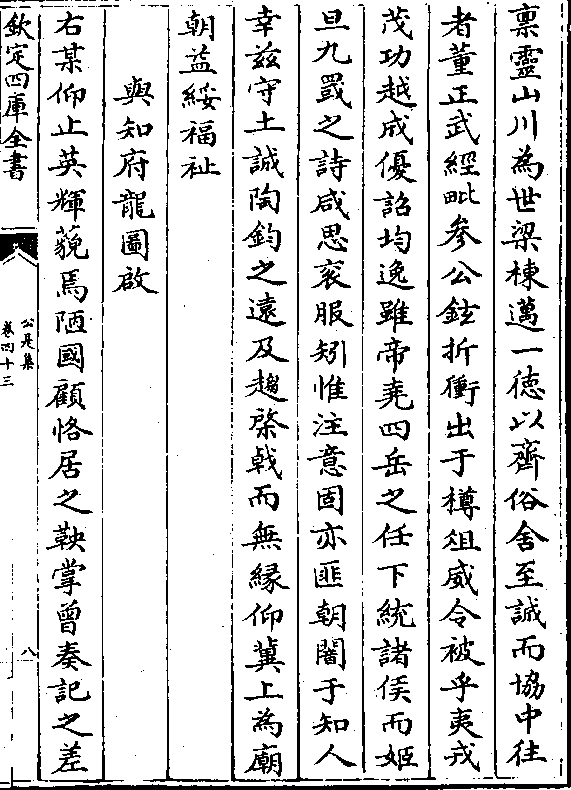 禀靈山川為世梁棟邁一徳以齊俗舍至誠而協中往
者董正武經毗参公鉉折衝出于樽俎威令被乎夷戎
茂功越成優詔均逸雖帝堯四岳之任下統諸侯而姬
旦九罭之詩咸思衮服矧惟注意固亦匪朝闇于知人
幸兹守土誠陶鈞之遠及趨棨戟而無縁仰冀上為廟
朝益綏福祉
與知府龍圖啟
右某仰止英輝藐焉陋國顧恪居之鞅掌曾奏記之差
欽定四庫全書
公是集
卷四十三
八